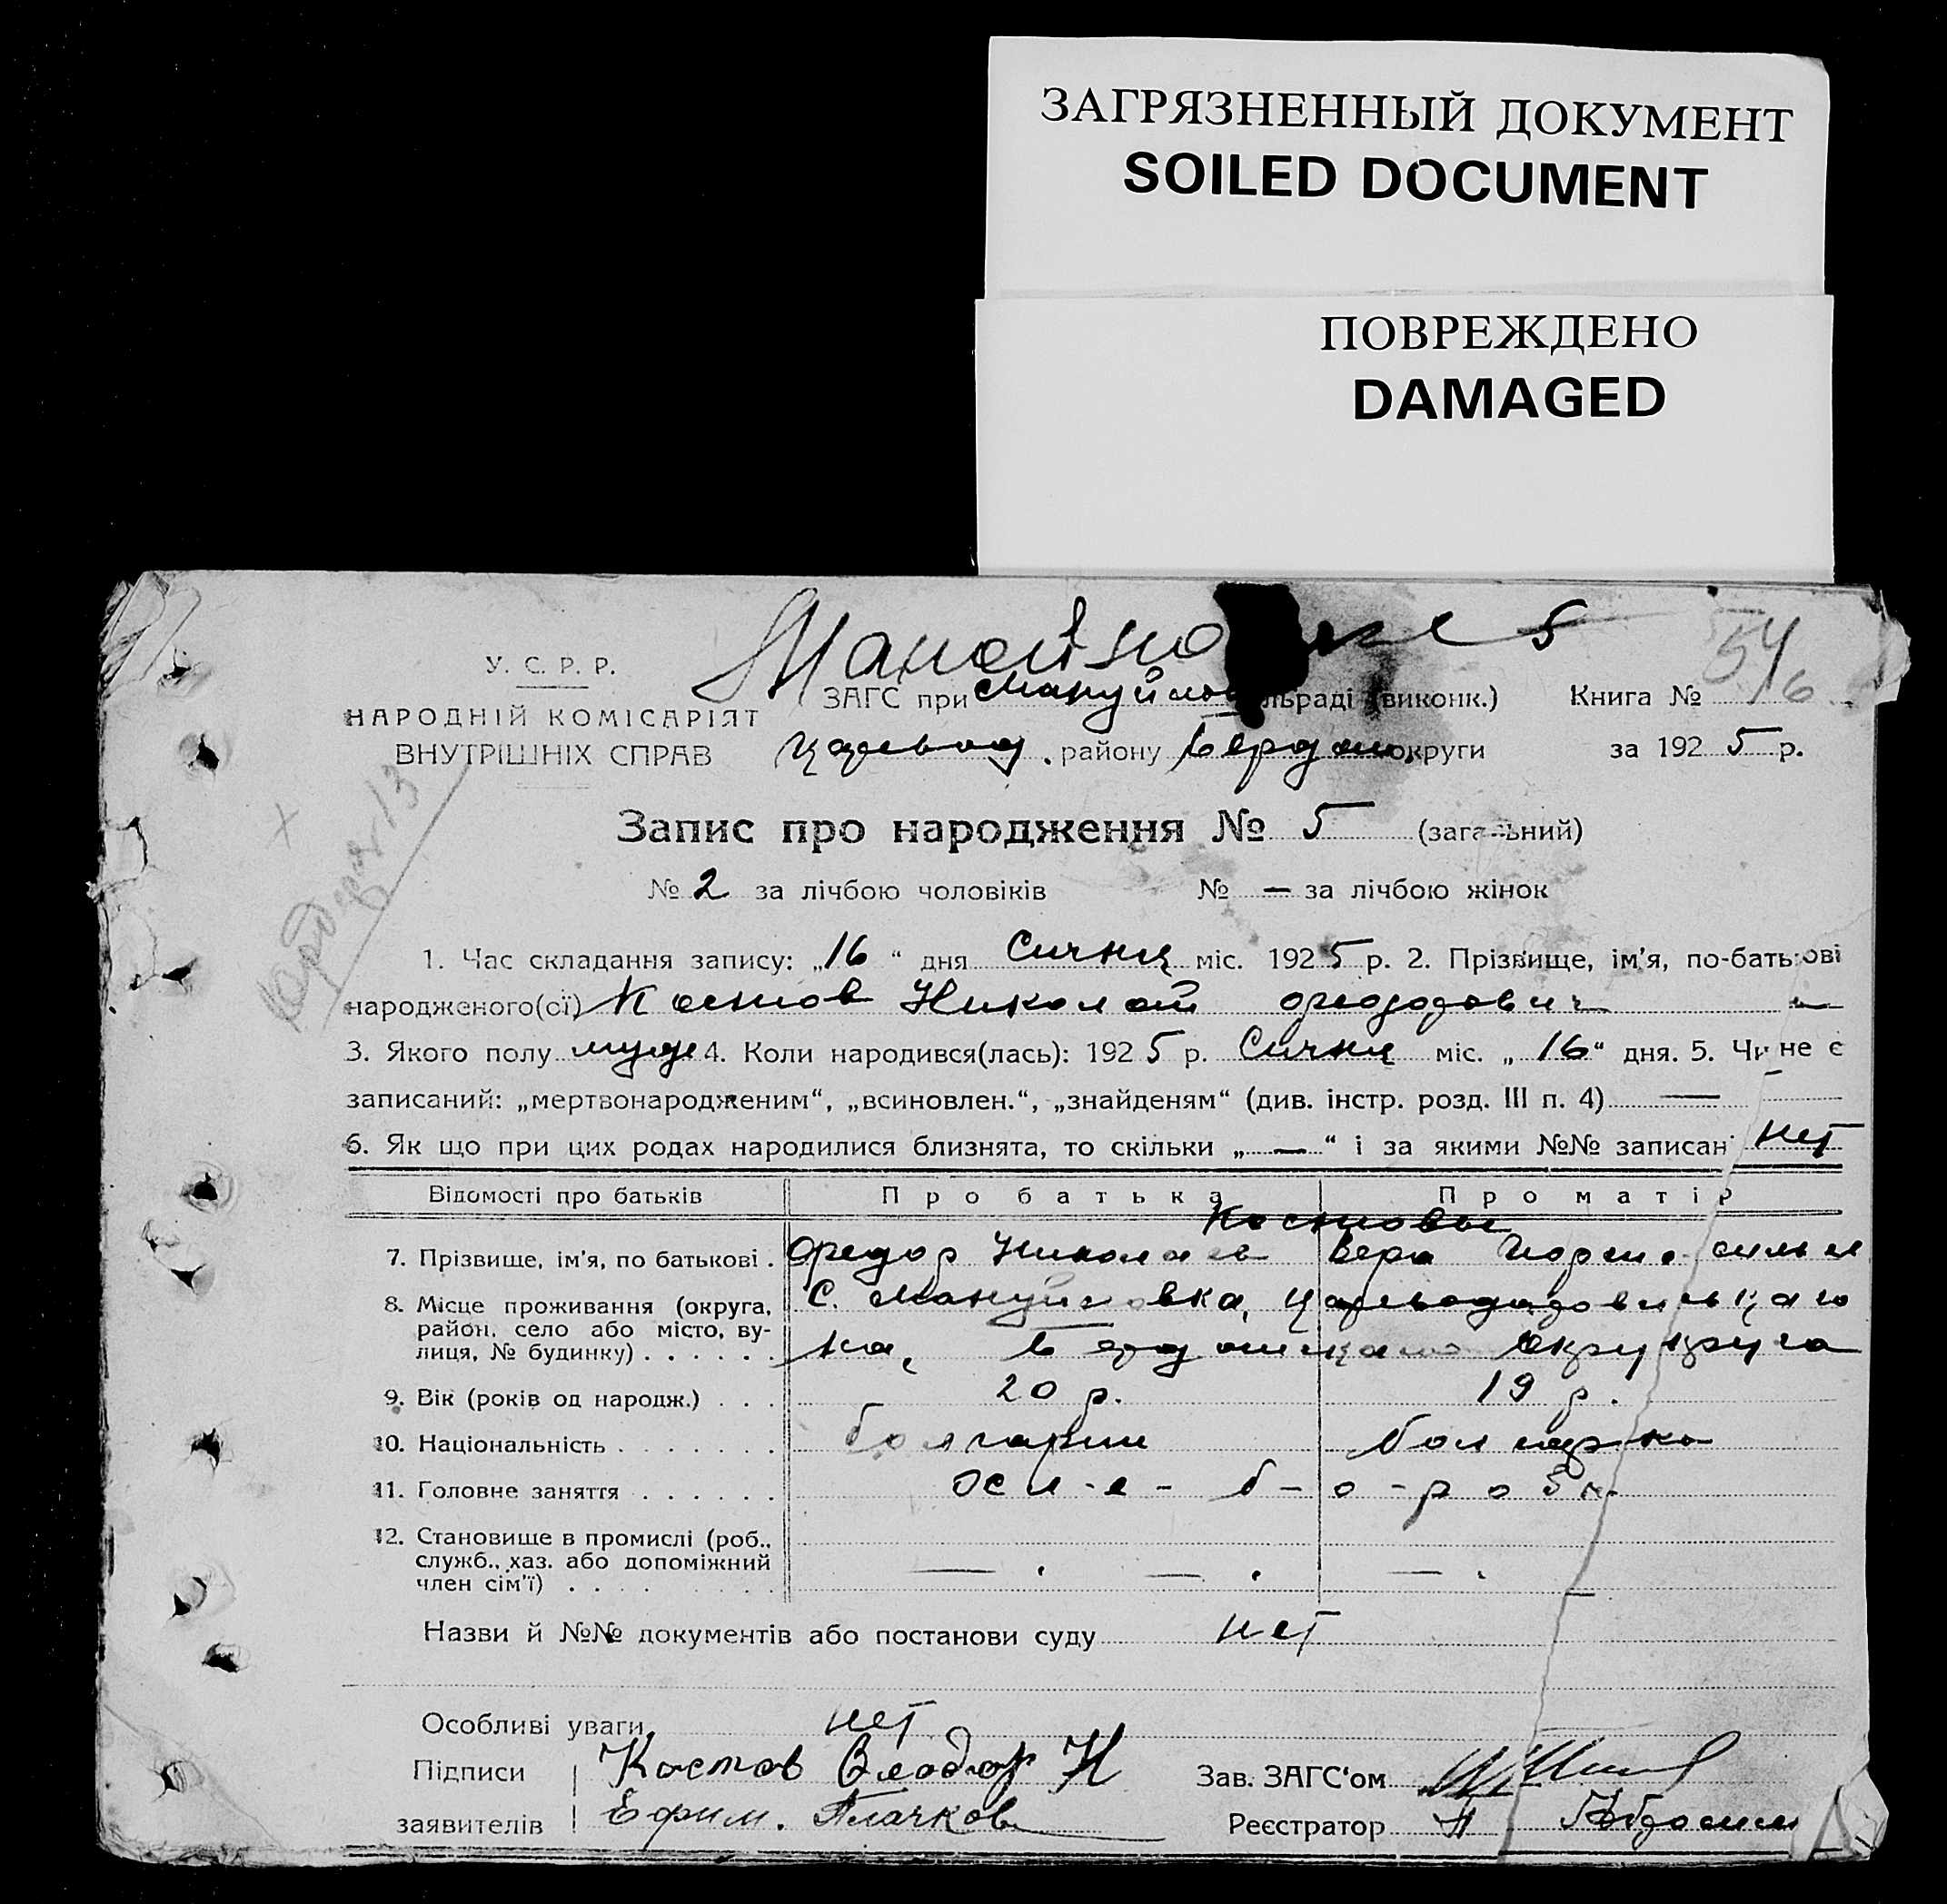 ЗАГРЯЗНЕННЫЙ ДОКУМЕНТ
SOILED DOCUMENT
ПОВРЕЖДЕНО
DAMAGED
5
54/6
У. С. Р. Р.
НАРОДНІЙ КОМІСАРІЯТ
ВНУТРІШНІХ СПРАВ
ЗАГС при Мануйлов льраді (виконк.) Книга №
району Бердян округи за 192 5 р.
Запис про народження № 5 (загальний)
№ 2 за лічбою чоловіків № — за лічбою жінок
1. Час складання запису: „16“ дня Сичня міс. 192 5 р. 2. Прізвище, ім'я, по-батькові
народженого(ої) Костов Николай Феодорович
3. Якого полу муж 4. Коли народився(лась): 192 5 р. Сичня міс. „16“ дня. 5. Чи не є
записаний: „мертвонародженим“, „всиновлен.“, „знайденям“ (див. інстр. розд. III п. 4) —
6. Як що при цих родах народилися близнята, то скільки „—“ і за якими №№ записані нет
Відомості про батьків Про батька Про матір
Костовы
7. Прізвище, ім'я, по батькові . Федор Николаев Вера
8. Місце проживання (округа, район, село або місто, вулиця, № будинку) . . . . . . С. Мануйловка,
округа
9. Вік (років од народж.) . . . 20 р. 19 р.
10. Національність . . . . . . . болгарин болгарка
11. Головне заняття . . . . . .
12. Становище в промислі (роб.,
служб., хаз. або допоміжний
член сім'ї) . . . . — . — . — .
Назви й №№ документів або постанови суду нет
Особливі уваги нет
Підписи Костов Феодор Н Зав. ЗАГС'ом
заявителів Ефим. Плачков Реєстратор